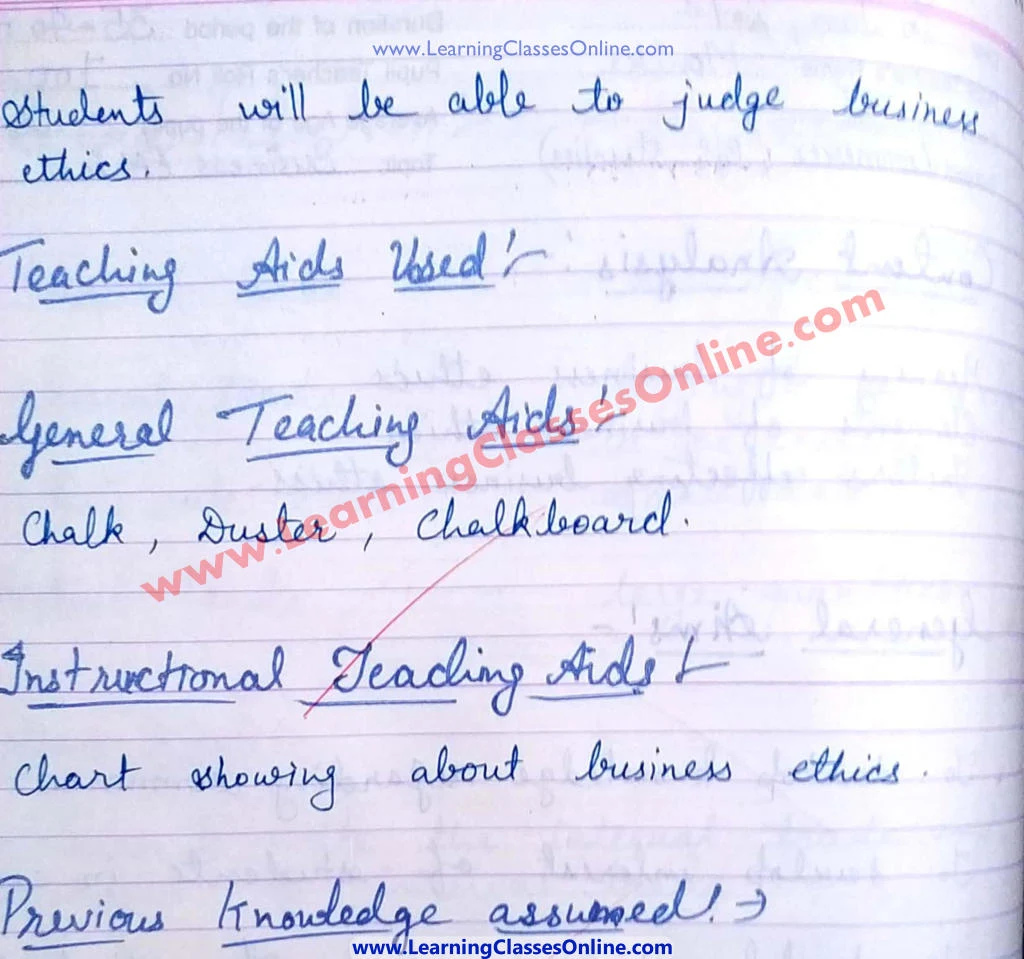 www.LearningClassesOnline.com
Students will be able to judge business
ethics.
Teaching Aids Used :-
General Teaching Aids :-
www.LearningClassesOnline.com
Chalk, Duster, Chalkboard.
Instructional Teaching Aids :-
Chart showing about business ethics.
Previous Knowledge assumed :→
www.LearningClassesOnline.com